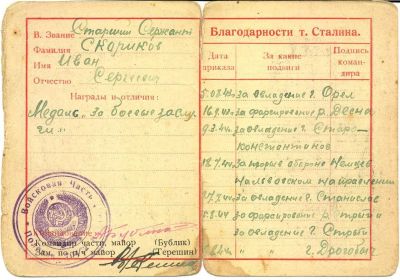 В. Звание Старший Сержант
Фамилия Скориков
Имя Иван
Отчество Сергеевич
Награды и отличия:
Медаль „За боевые заслу-
ги"
Войсковая Часть
Командир части, майор (Бублик)
Зам. по п/ч майор (Терешин)
Благодарности т. Сталина.
Дата приказа
За какие подвиги
Подпись командира
за овладение г. Орел
за форсирование р. Десна
за овладение г. Старо-
константинов
за прорыв обороны Немцев
на Львовском направлении
за овладение г. Станислав
за форсирование р. Стрый
за овладение г. Стрый
г. Дрогобыч